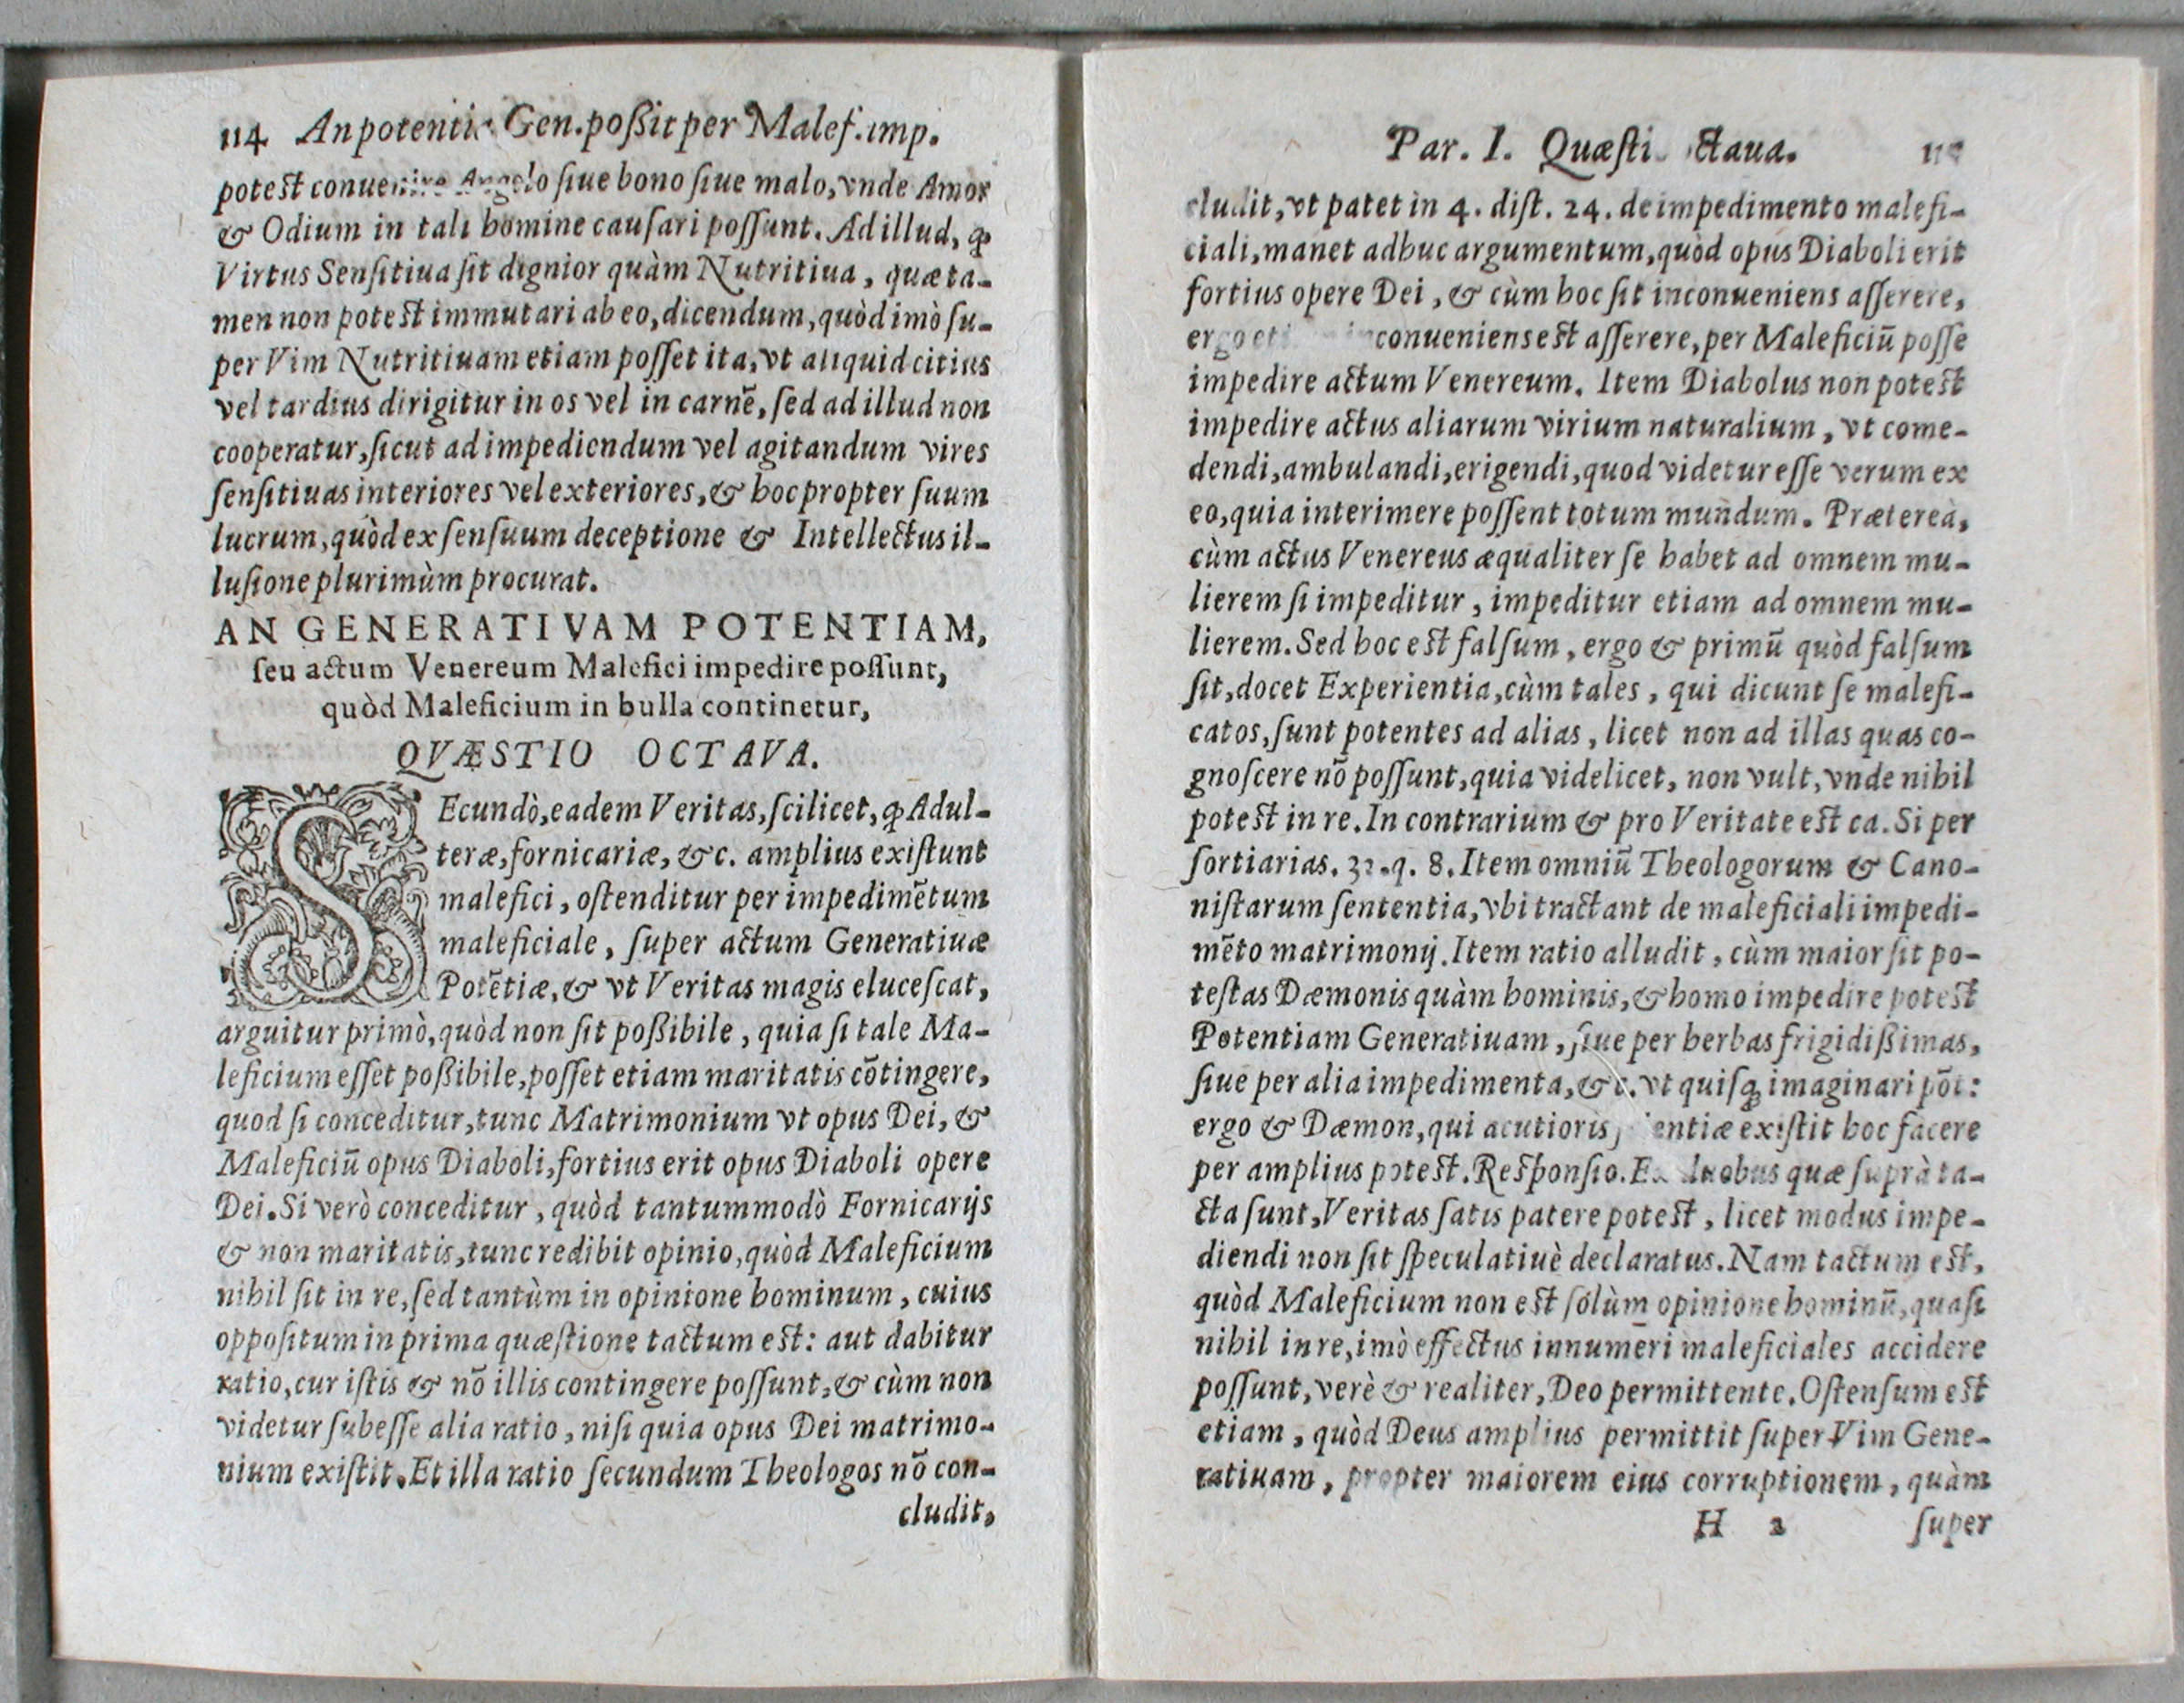 114 An potentia Gen. poßit per Malef. imp.
potest conuenire Angelo siue bono siue malo, vnde Amor
& Odium in tali homine causari possunt. Ad illud, ꝙ
Virtus Sensitiua sit dignior quàm Nutritiua, quæ ta-
men non potest immutari ab eo, dicendum, quòd imò su-
per Vim Nutritiuam etiam posset ita, vt aliquid citius
vel tardius dirigitur in os vel in carnē, sed ad illud non
cooperatur, sicut ad impediendum vel agitandum vires
sensitiuas interiores vel exteriores, & hoc propter suum
lucrum, quòd ex sensuum deceptione & Intellectus il-
lusione plurimùm procurat.
AN GENERATIVAM POTENTIAM,
seu actum Venereum Malefici impedire possunt,
quòd Maleficium in bulla continetur,
QVÆSTIO OCTAVA.
SEcundò, eadem Veritas, scilicet, ꝙ Adul-
teræ, fornicariæ, &c. amplius existunt
malefici, ostenditur per impedimētum
maleficiale, super actum Generatiuæ
Potētiæ, & vt Veritas magis elucescat,
arguitur primò, quòd non sit poßibile, quia si tale Ma-
leficium esset poßibile, posset etiam maritatis cōtingere,
quod si conceditur, tunc Matrimonium vt opus Dei, &
Maleficiū opus Diaboli, fortius erit opus Diaboli opere
Dei. Si verò conceditur, quòd tantummodò Fornicarijs
& non maritatis, tunc redibit opinio, quòd Maleficium
nihil sit in re, sed tantùm in opinione hominum, cuius
oppositum in prima quæstione tactum est: aut dabitur
ratio, cur istis & nō illis contingere possunt, & cùm non
videtur subesse alia ratio, nisi quia opus Dei matrimo-
nium existit. Et illa ratio secundum Theologos nō con-
cludit,
Par. I. Quæsti ctaua.
cludit, vt patet in 4. dist. 24. de impedimento malefi-
ciali, manet adhuc argumentum, quòd opus Diaboli erit
fortius opere Dei, & cùm hoc sit inconueniens asserere,
ergo inconueniens est asserere, per Maleficiū posse
impedire actum Venereum. Item Diabolus non potest
impedire actus aliarum virium naturalium, vt come-
dendi, ambulandi, erigendi, quod videtur esse verum ex
eo, quia interimere possent totum mundum. Præterea,
cùm actus Venereus æqualiter se habet ad omnem mu-
lierem si impeditur, impeditur etiam ad omnem mu-
lierem. Sed hoc est falsum, ergo & primū quòd falsum
sit, docet Experientia, cùm tales, qui dicunt se malefi-
catos, sunt potentes ad alias, licet non ad illas quas co-
gnoscere nō possunt, quia videlicet, non vult, vnde nihil
potest in re. In contrarium & pro Veritate est ca. Si per
sortiarias. 32. q. 8. Item omniū Theologorum & Cano-
nistarum sententia, vbi tractant de maleficiali impedi-
mēto matrimonij. Item ratio alludit, cùm maior sit po-
testas Dæmonis quàm hominis, & homo impedire potest
Potentiam Generatiuam, siue per herbas frigidißimas,
siue per alia impedimenta, &c. vt quisꝗ imaginari pōt:
ergo & Dæmon, qui acutioris existit hoc facere
per amplius potest. Responsio. Ex duobus quæ suprà ta-
cta sunt, Veritas satis patere potest, licet modus impe-
diendi non sit speculatiuè declaratus. Nam tactum est,
quòd Maleficium non est sólùm opinione hominū, quasi
nihil in re, imò effectus innumeri maleficiales accidere
possunt, verè & realiter, Deo permittente. Ostensum est
etiam, quòd Deus amplius permittit super Vim Gene-
ratiuam, propter maiorem eius corruptionem, quàm
H 2 super